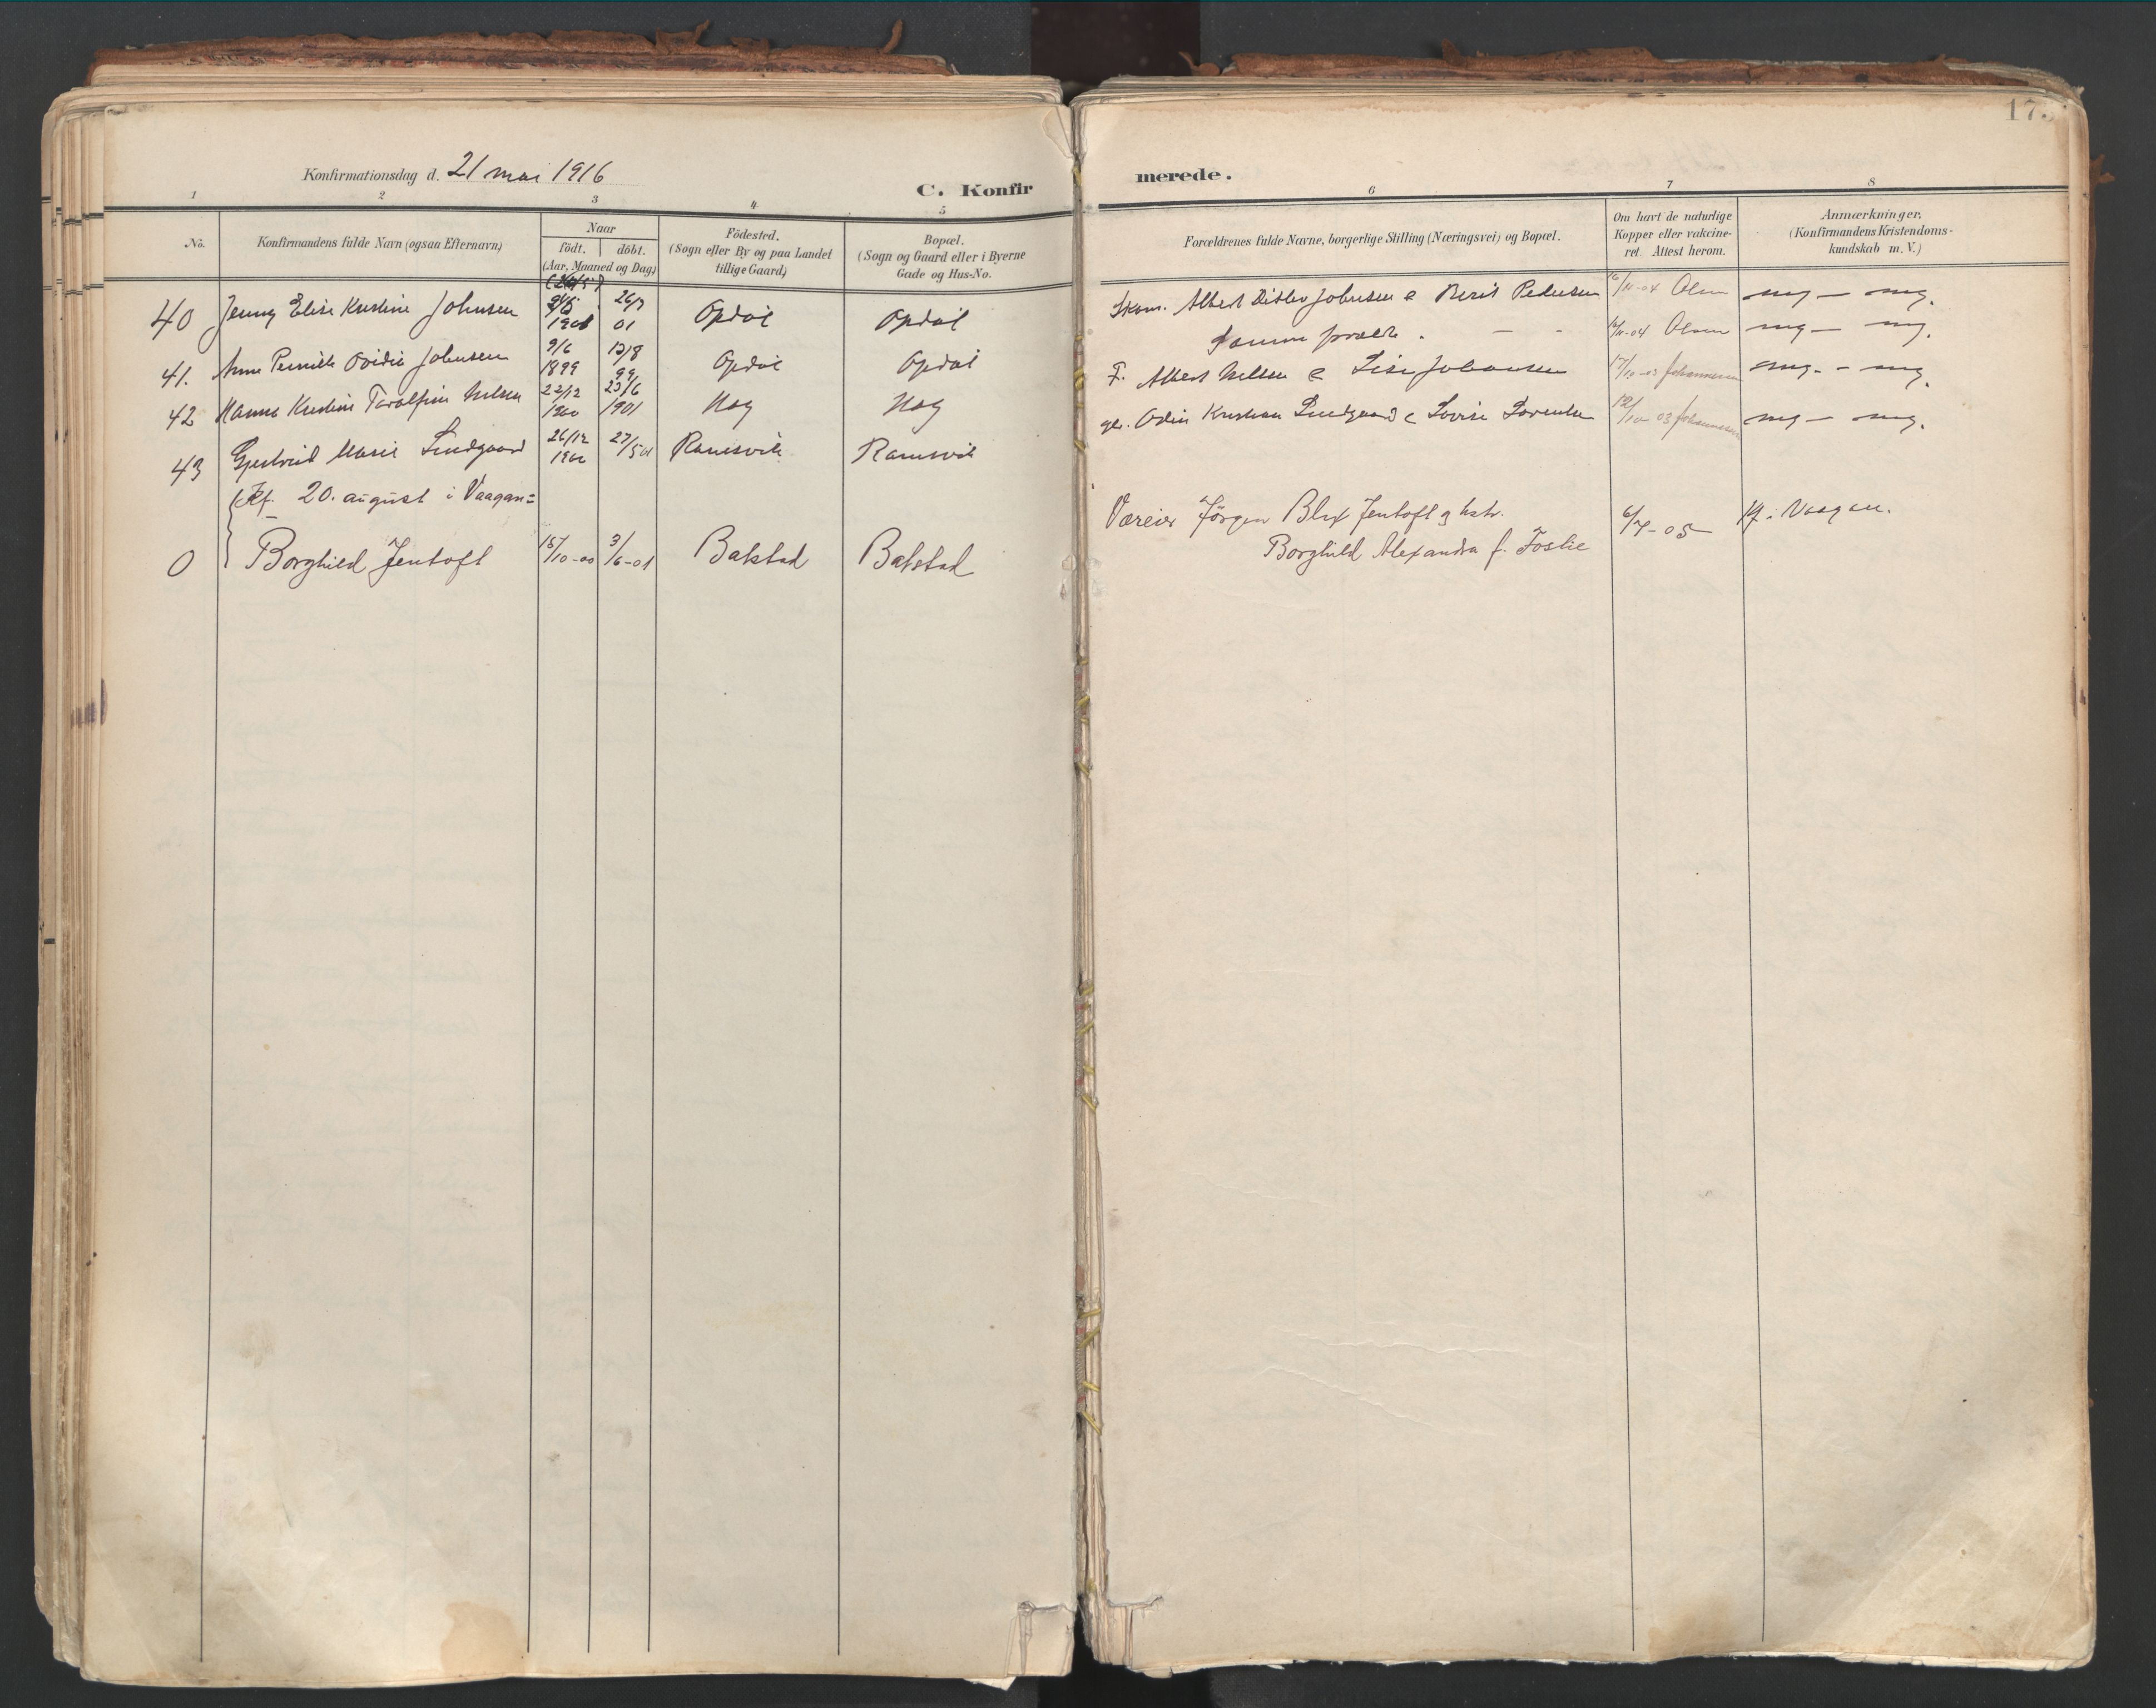 173
Konfirmationsdag d. 21 mai 1916
C. Konfirmerede.
1 2 3 4 5 6 7 8
No.
Konfirmandens fulde Navn (ogsaa Efternavn)
Naar
födt. döbt.
(Aar, Maaned og Dag)
Födested.
(Sogn eller By og paa Landet
tillige Gaard)
Bopæl.
(Sogn og Gaard eller i Byerne
Gade og Hus-No.
Forældrenes fulde Navne, borgerlige Stilling (Næringsvei) og Bopæl.
Om havt de naturlige
Kopper eller vakcine-
ret. Attest herom.
Anmærkninger.
(Konfirmandens Kristendoms-
kundskab m. V.)
40 Jenny Elise Kristine Johnsen 1901 26/7 01 Opdøl Opdøl Albert Ditlev Johnsen e Berit Pedersen 16/11-04 Olsen mg — mg.
41. Anna Pernille Ovidie Johnsen 9/6 1899 13/8 99 Opdøl Opdøl Samme forældre. — - 16/11-04 Olsen mg — mg.
42 Hanna Kristine Nilsen 22/12 1900 23/6 1901 Hag Hag F. Albert Nilsen e Lise Johansen 17/10-03 Johannessen mg - mg.
43 Marie Lindgaard 26/12 1900 27/5 01 Ramsvik Ramsvik Odin Kristian Lindgaard e Lovise 12/10 03 Johannessen mg — mg.
(Kf. 20. august i Vaagan:
0 Borghild Jentoft 15/10-00 3/6-01 Balstad Balstad Væreier Jørgen Blix Jentoft og hstr.
Borghild Alexandra f. Foslie 6/7-05 Kf. i Vaagan.